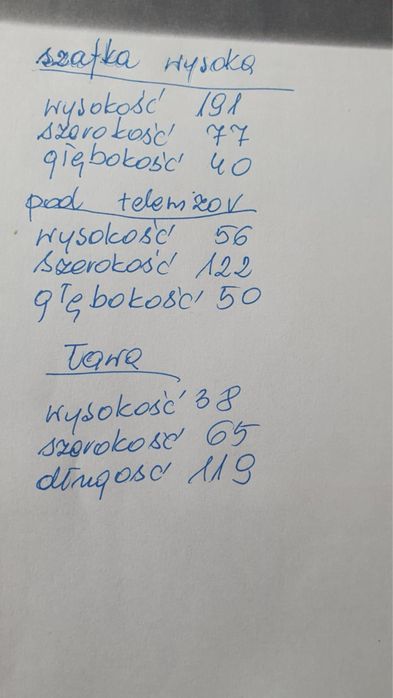 szafka wysoka
wysokość 191
szerokość 77
głębokość 40
pod telewizor
wysokość 56
szerokość 122
głębokość 50
Ława
wysokość 38
szerokość 65
długość 119